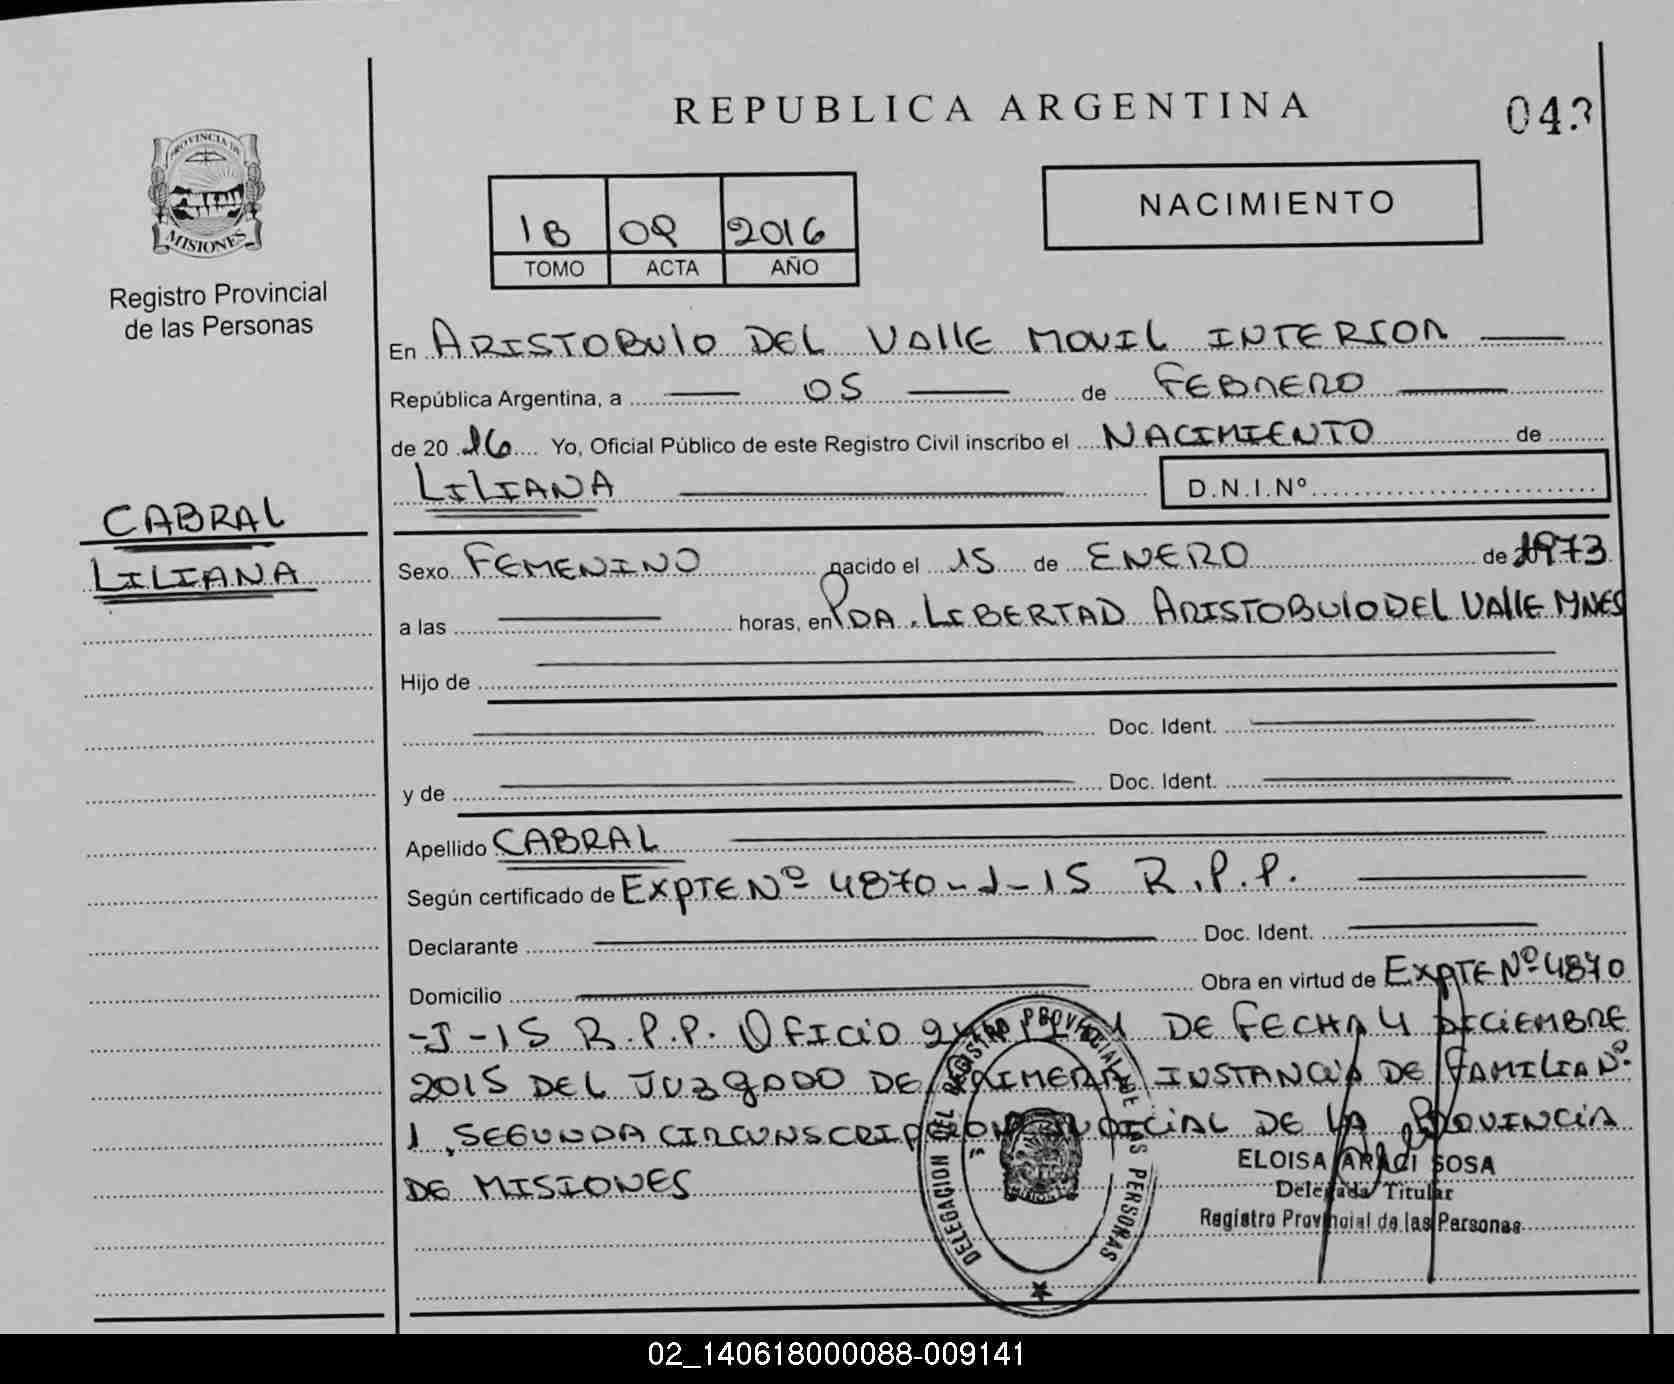 REPUBLICA ARGENTINA
043
PROVINCIA DE
MISIONES
Registro Provincial
de las Personas
NACIMIENTO
1B 09 2016
TOMO ACTA AÑO
En ARISTOBULO DEL VALLE MOVIL INTERIOR
República Argentina, a 05 de FEBRERO
de 2016 Yo, Oficial Público de este Registro Civil inscribo el NACIMIENTO de
LILIANA D.N.I.Nº
CABRAL
LILIANA
Sexo FEMENINO nacido el 15 de ENERO de 1973
a las horas, en PDA. LIBERTAD ARISTOBULO DEL VALLE MNES
Hijo de
Doc. Ident.
y de Doc. Ident.
Apellido CABRAL
Según certificado de EXPTE Nº 4870-J-15 R.P.P.
Declarante Doc. Ident.
Domicilio Obra en virtud de EXPTE Nº 4870
-J-15 R.P.P. OFICIO DE FECHA 4 DICIEMBRE
2015 DEL JUZGADO DE PRIMERA INSTANCIA DE FAMILIA Nº
1, SEGUNDA CIRCUNSCRIPCION JUDICIAL DE LA PROVINCIA
DE MISIONES
DELEGACION DEL REGISTRO PROVINCIAL DE LAS PERSONAS
ELOISA ARACI SOSA
Delegada Titular
Registro Provincial de las Personas
02_140618000088-009141